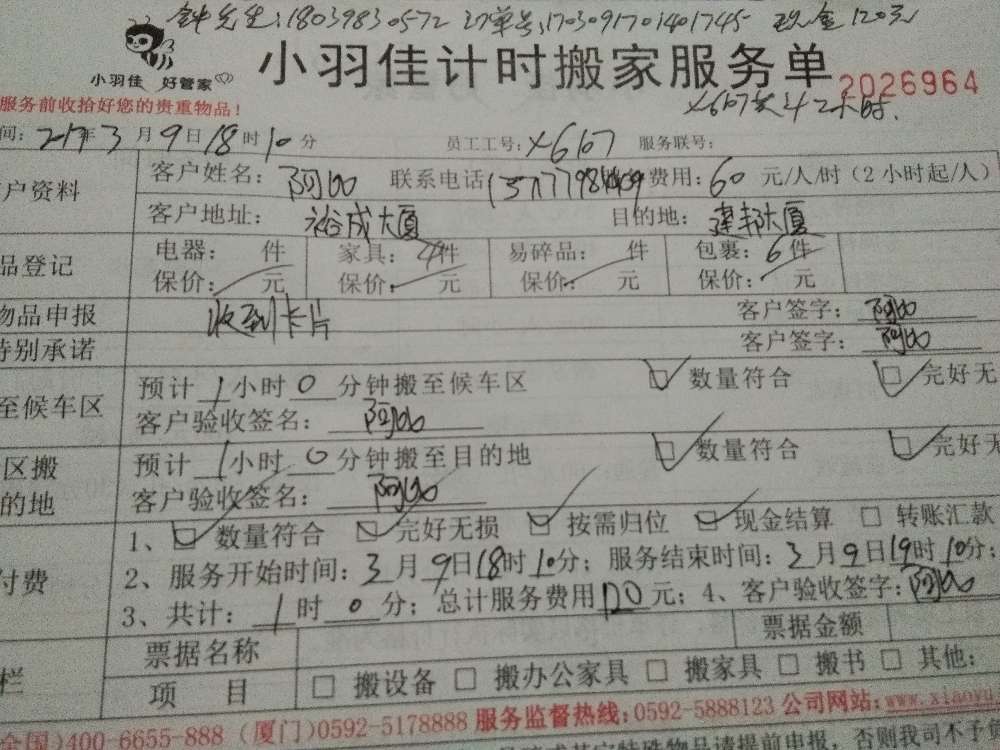 钟先生:18039830572 订单号:1703091701401745 现金120元
小羽佳 好管家
小羽佳计时搬家服务单 2026964
服务前收拾好您的贵重物品!
间: 2017年3月9日18时10分 员工工号: X6107 服务联号:
户资料 客户姓名: 联系电话 费用: 60 元/人/时(2小时起/人)
客户地址: 裕成大厦 目的地: 建邦大厦
品登记 电器: 件 家具: 4件 易碎品: 件 包裹: 6件
保价: 元 保价: 元 保价: 元 保价: 元
物品申报 收到卡片 客户签字:
特别承诺 客户签字:
至候车区 预计1小时0分钟搬至候车区 数量符合 完好无
客户验收签名:
区搬 预计1小时0分钟搬至目的地 数量符合 完好无
的地 客户验收签名:
1、 数量符合 完好无损 按需归位 现金结算 转账汇款
付费 2、服务开始时间: 3月9日18时10分; 服务结束时间: 3月9日19时10分;
3、共计: 1时0分; 总计服务费用120元; 4、客户验收签字:
票据名称 票据金额
栏 项 目 搬设备 搬办公家具 搬家具 搬书 其他:
全国)400-6655-888 (厦门)0592-5178888 服务监督热线:0592-5888123 公司网站:www.xiaoyu
特殊物品请提前申报,否则我司不予